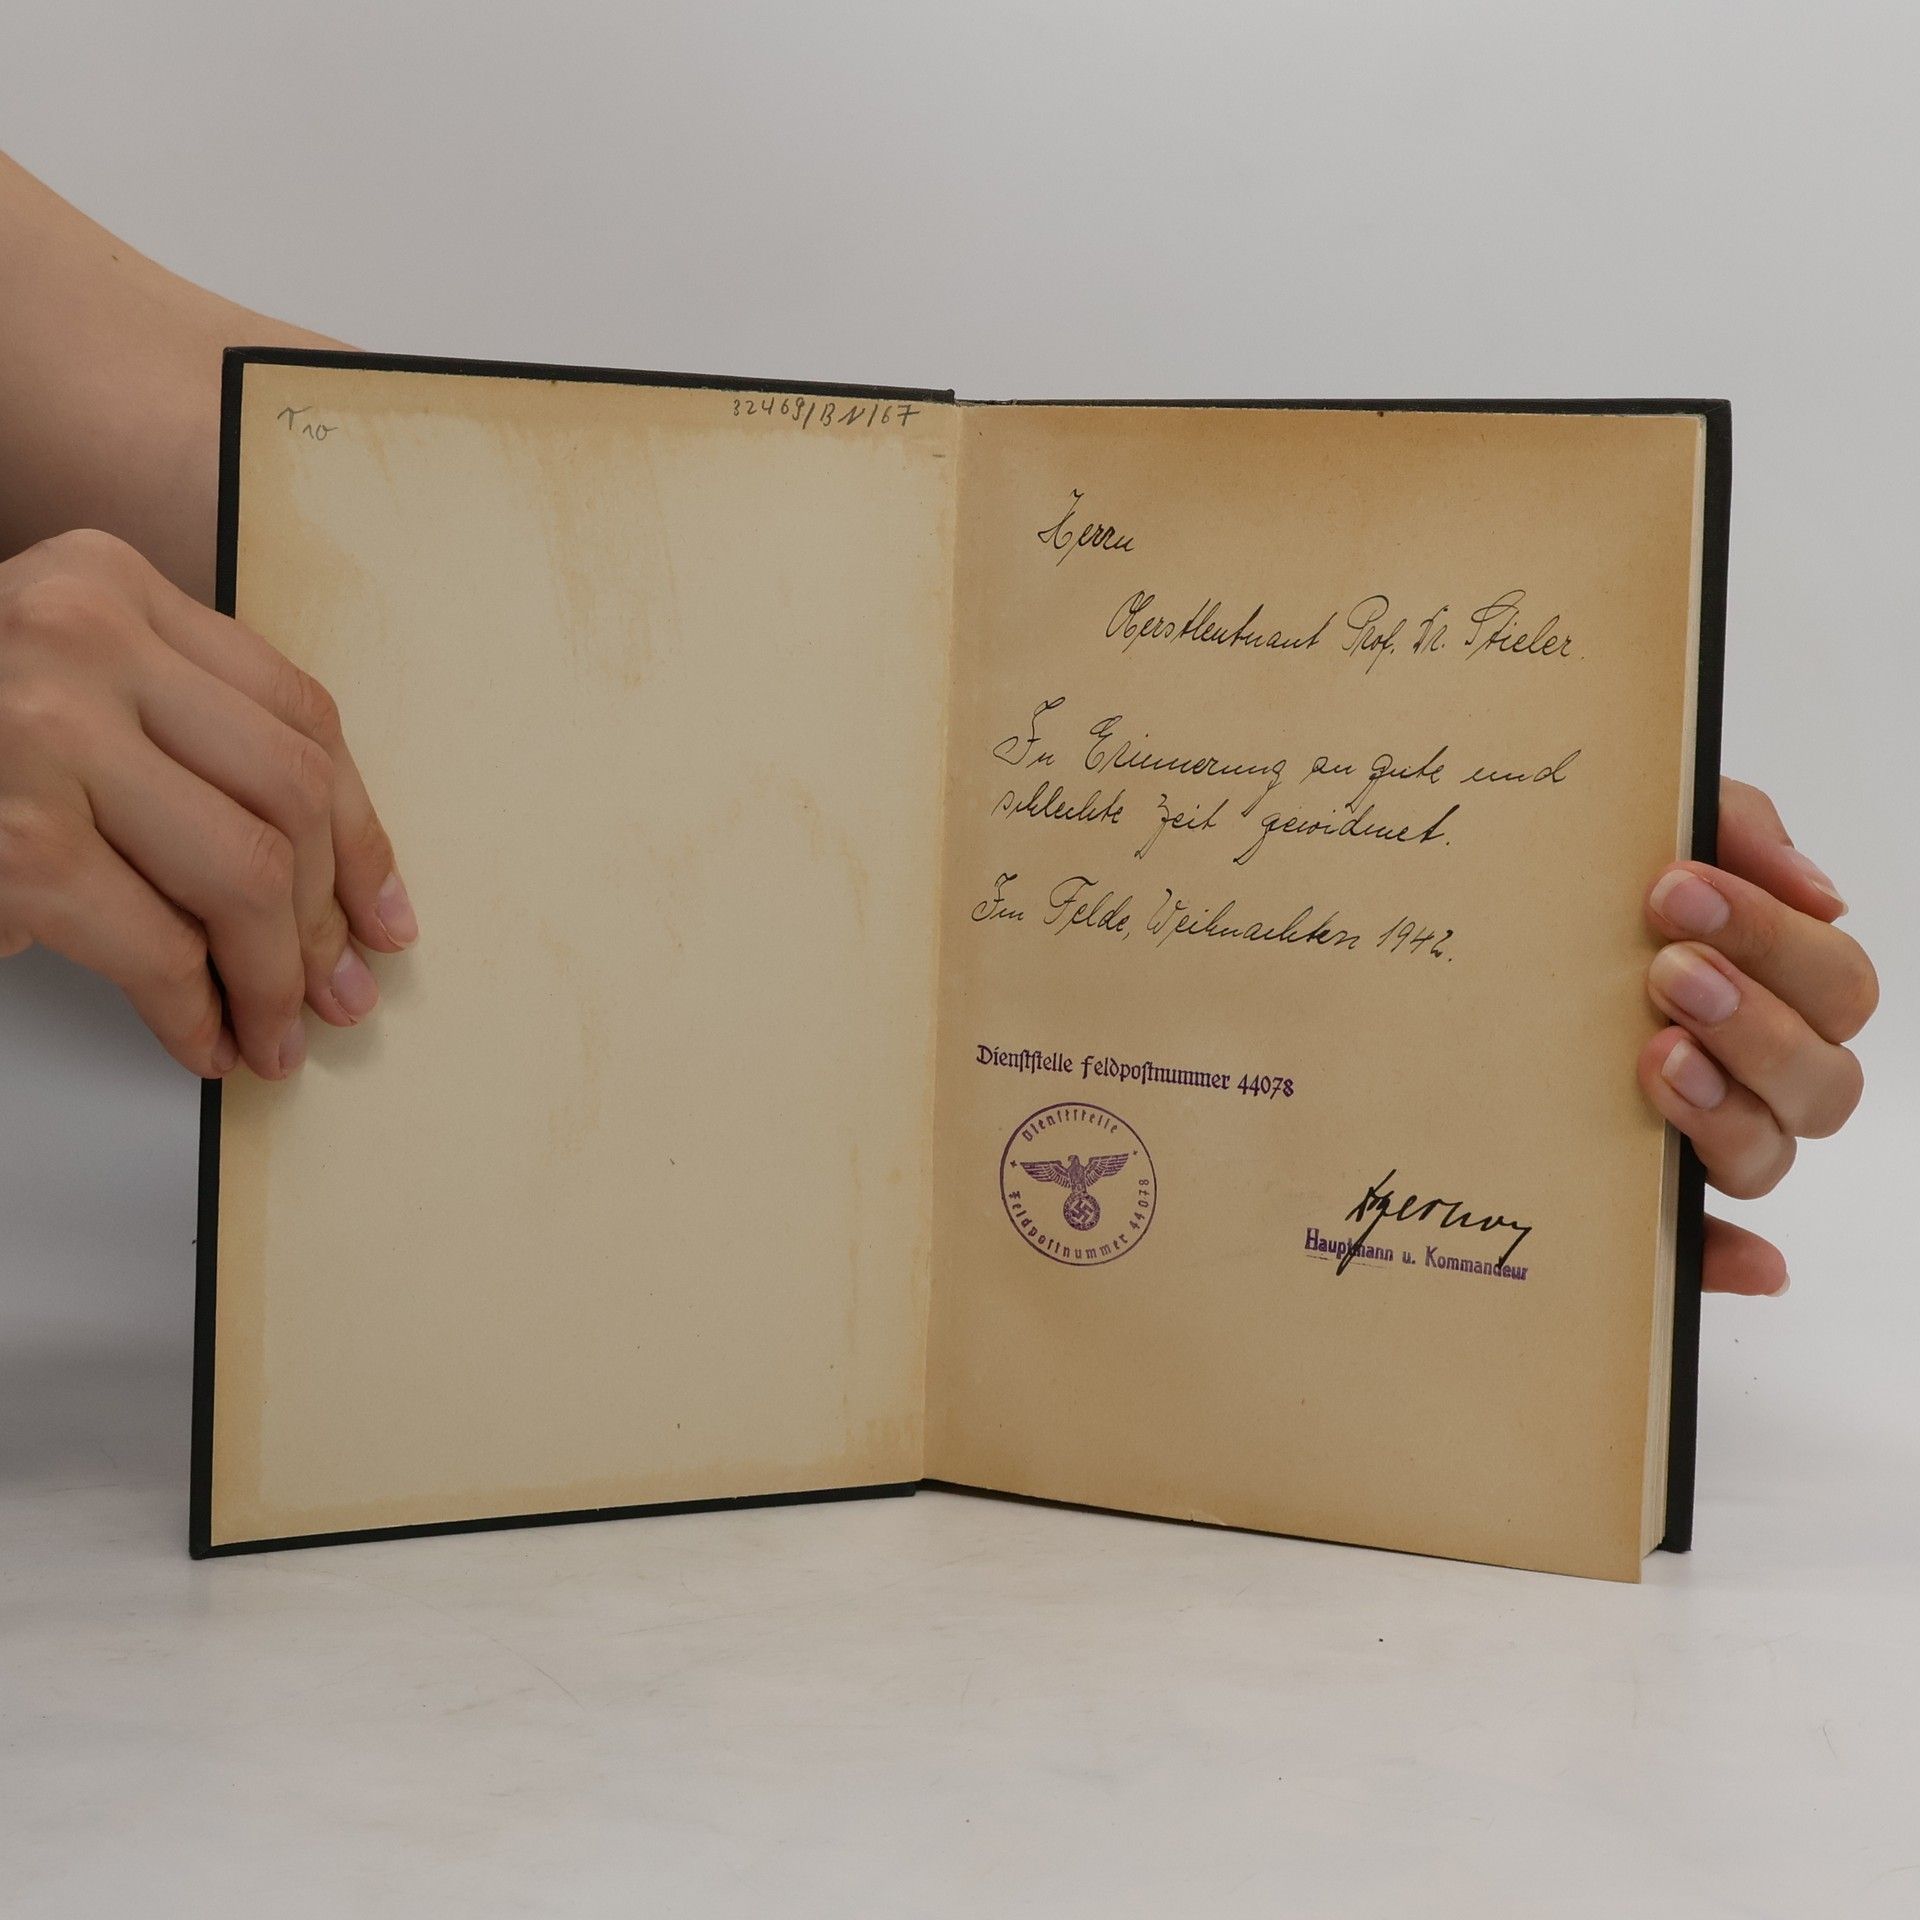 32469/BN/67
Herrn
Oberstleutnant Prof. Dr. Stieler.
In Erinnerung an gute und
schlechte Zeit gewidmet.
Im Felde, Weihnachten 1942.
Dienſtſtelle Feldpoſtnummer 44078
Dienſtſtelle
Feldpoſtnummer 44078
Hauptmann u. Kommandeur